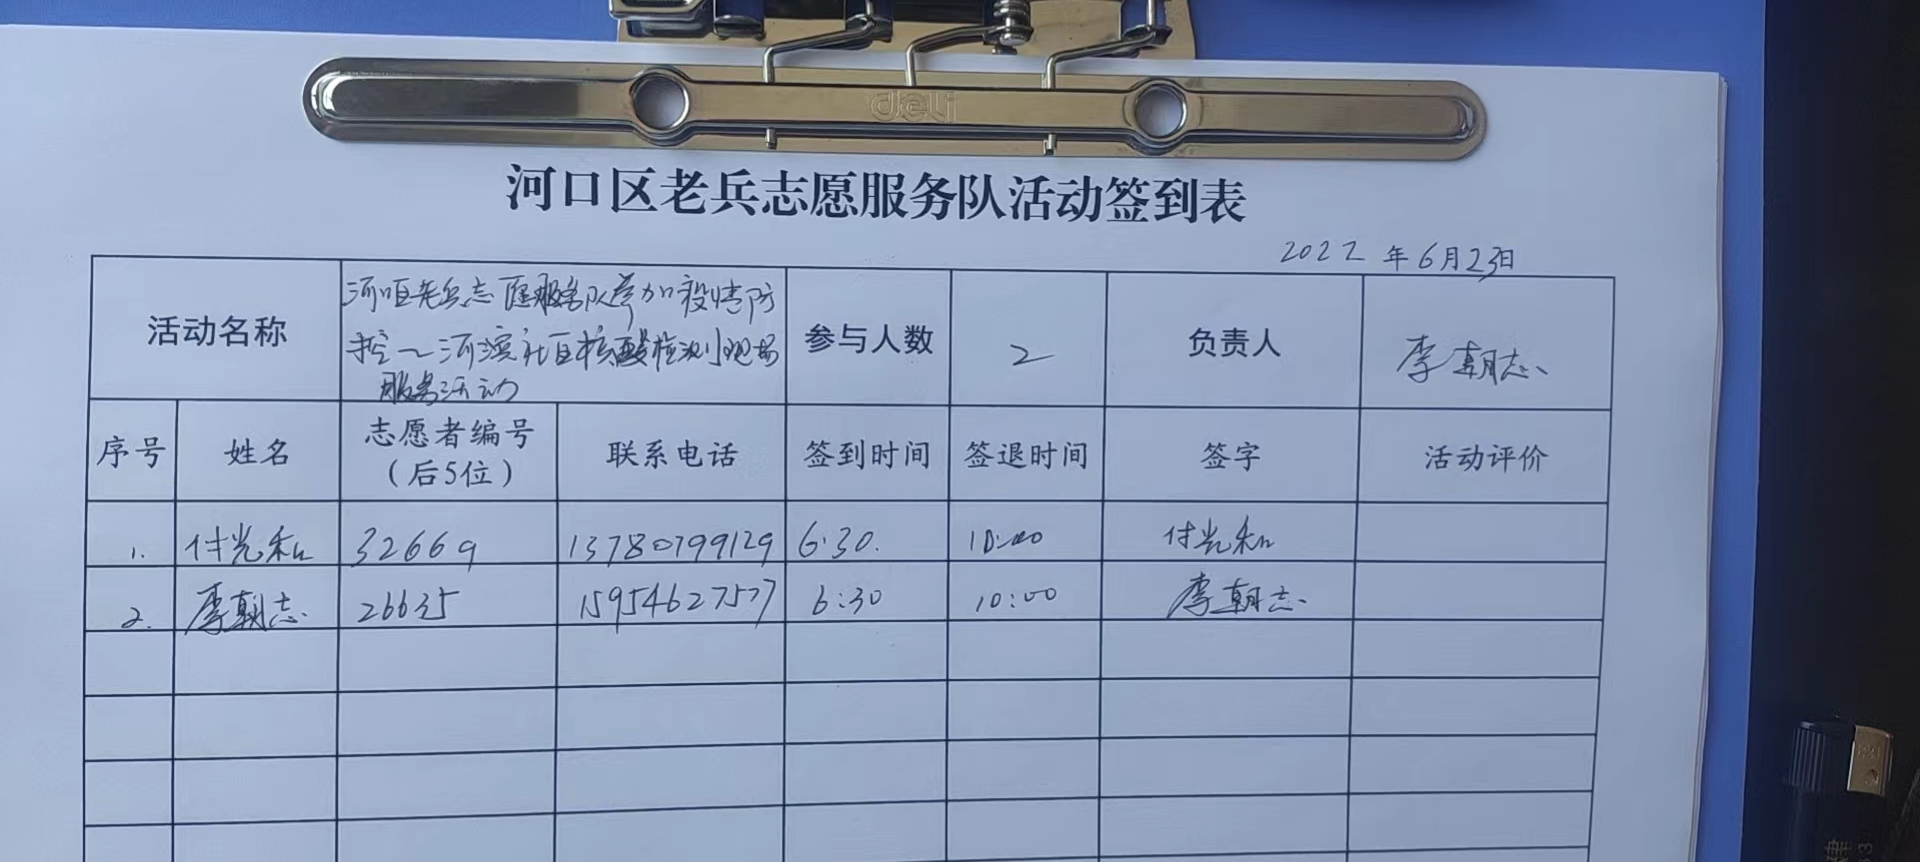 deli
河口区老兵志愿服务队活动签到表
2022年6月23日
活动名称
河口区老兵志愿服务队参加疫情防
控—河滨社区核酸检测现场
服务活动
参与人数
2
负责人
李朝志
序号
姓名
志愿者编号
（后5位）
联系电话
签到时间
签退时间
签字
活动评价
1. 付光和 32669 13780799129 6:30. 10:00 付光和
2. 李朝志 26635 15954627577 6:30 10:00 李朝志